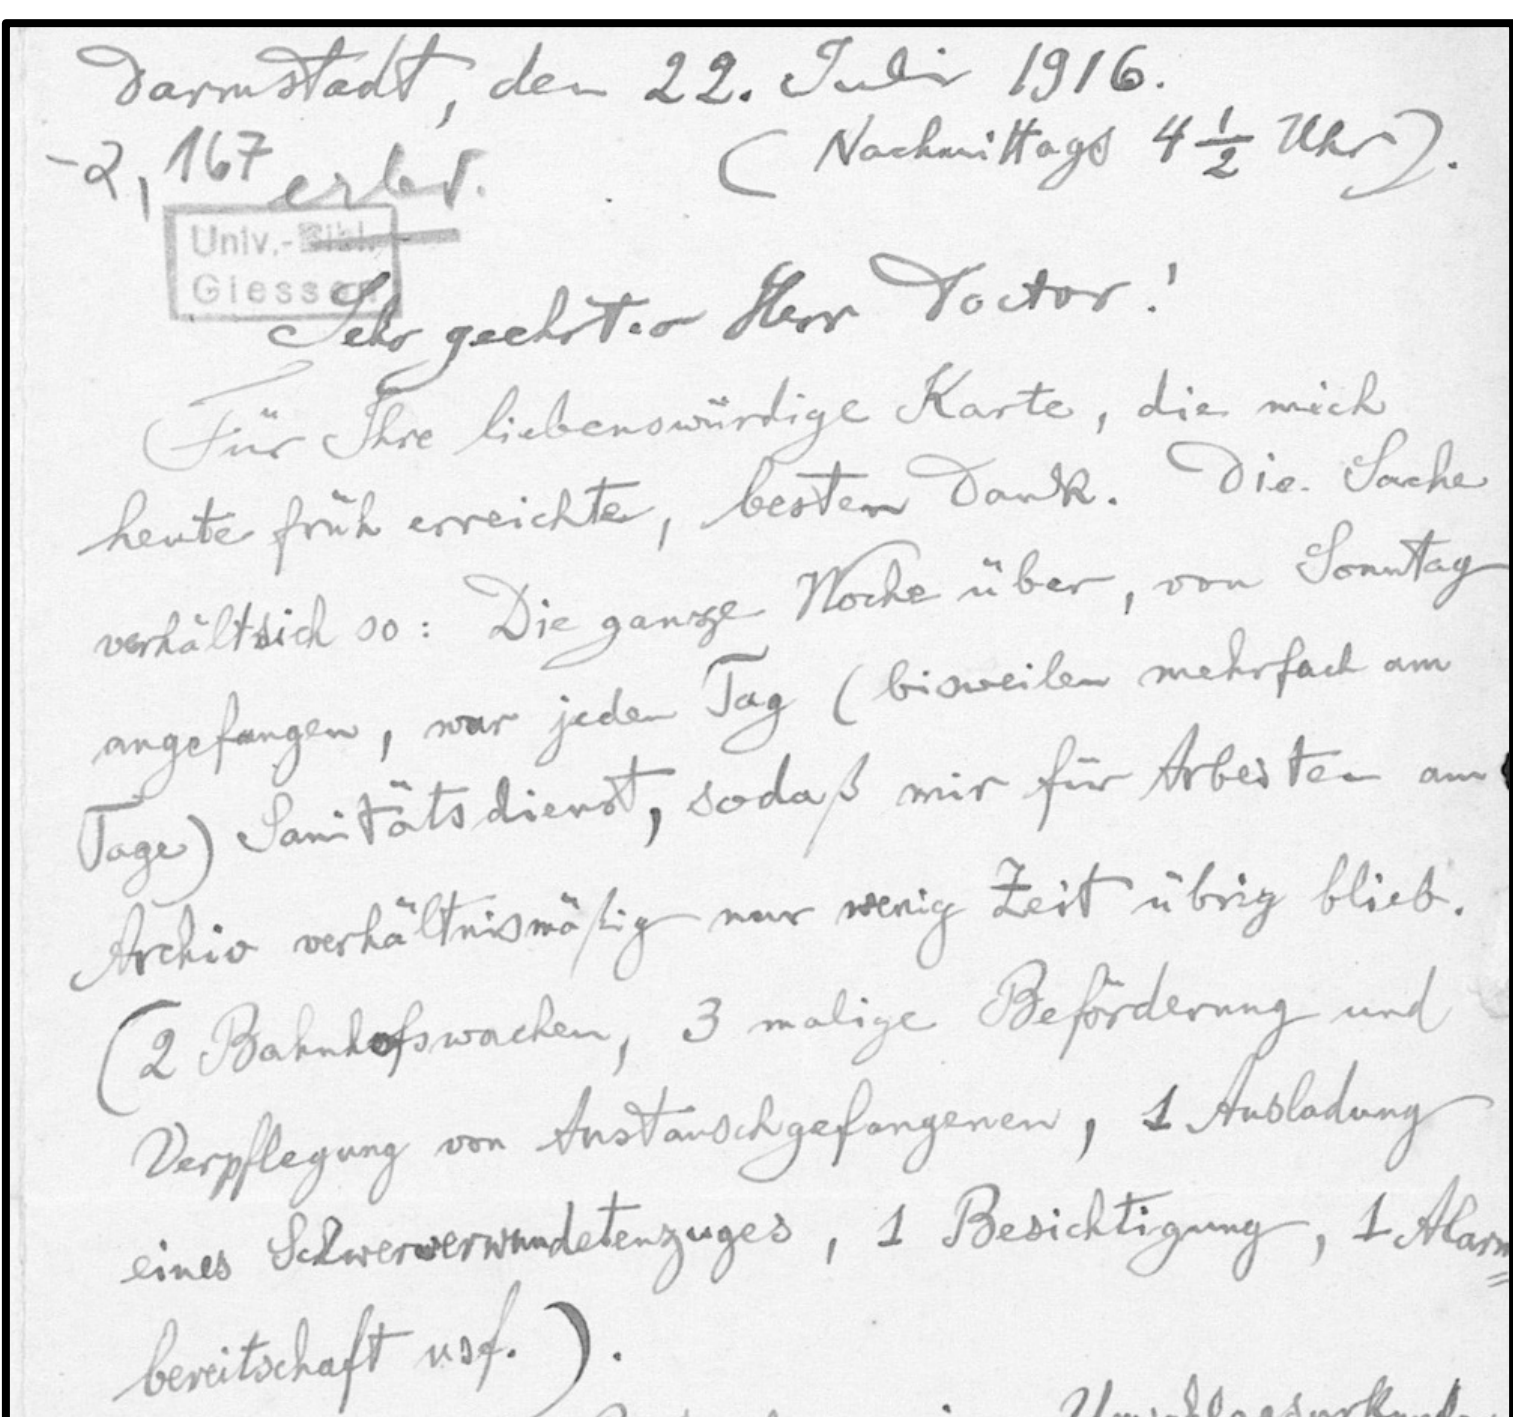 Darmstadt, den 22. Juli 1916.
(Nachmittags 4 1/2 Uhr).
-2, 167
Univ.-Bibl.
Giessen
Sehr geehrter Herr Doctor!
Für Ihre liebenswürdige Karte, die mich
heute früh erreichte, besten Dank. Die Sache
verhält sich so: Die ganze Woche über, von Sonntag
angefangen, war jeden Tag (bisweilen mehrfach am
Tage) Sanitätsdienst, sodaß mir für Arbeiten am
Archiv verhältnismäßig nur wenig Zeit übrig blieb.
(2 Bahnhofswachen, 3 malige Beförderung und
Verpflegung von Austauschgefangenen, 1 Ausladung
eines Schwerverwundetenzuges, 1 Besichtigung, 1 Alarm=
bereitschaft usf.).